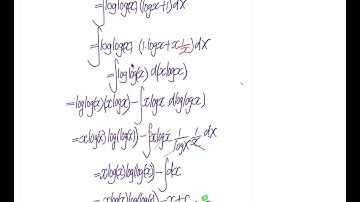 =∫loglog(x) (logx+1)dx
=∫loglog(x) (1·logx+x 1/x)dx
=∫loglog(x) d(xlogx)
=loglog(x)(xlogx)-∫xlogx dloglog(x)
=xlog(x)log(log(x))-∫xlogx 1/logx 1/x dx
=xlog(x)log(log(x))-∫dx
=xlog(x)log(log(x))-x+c